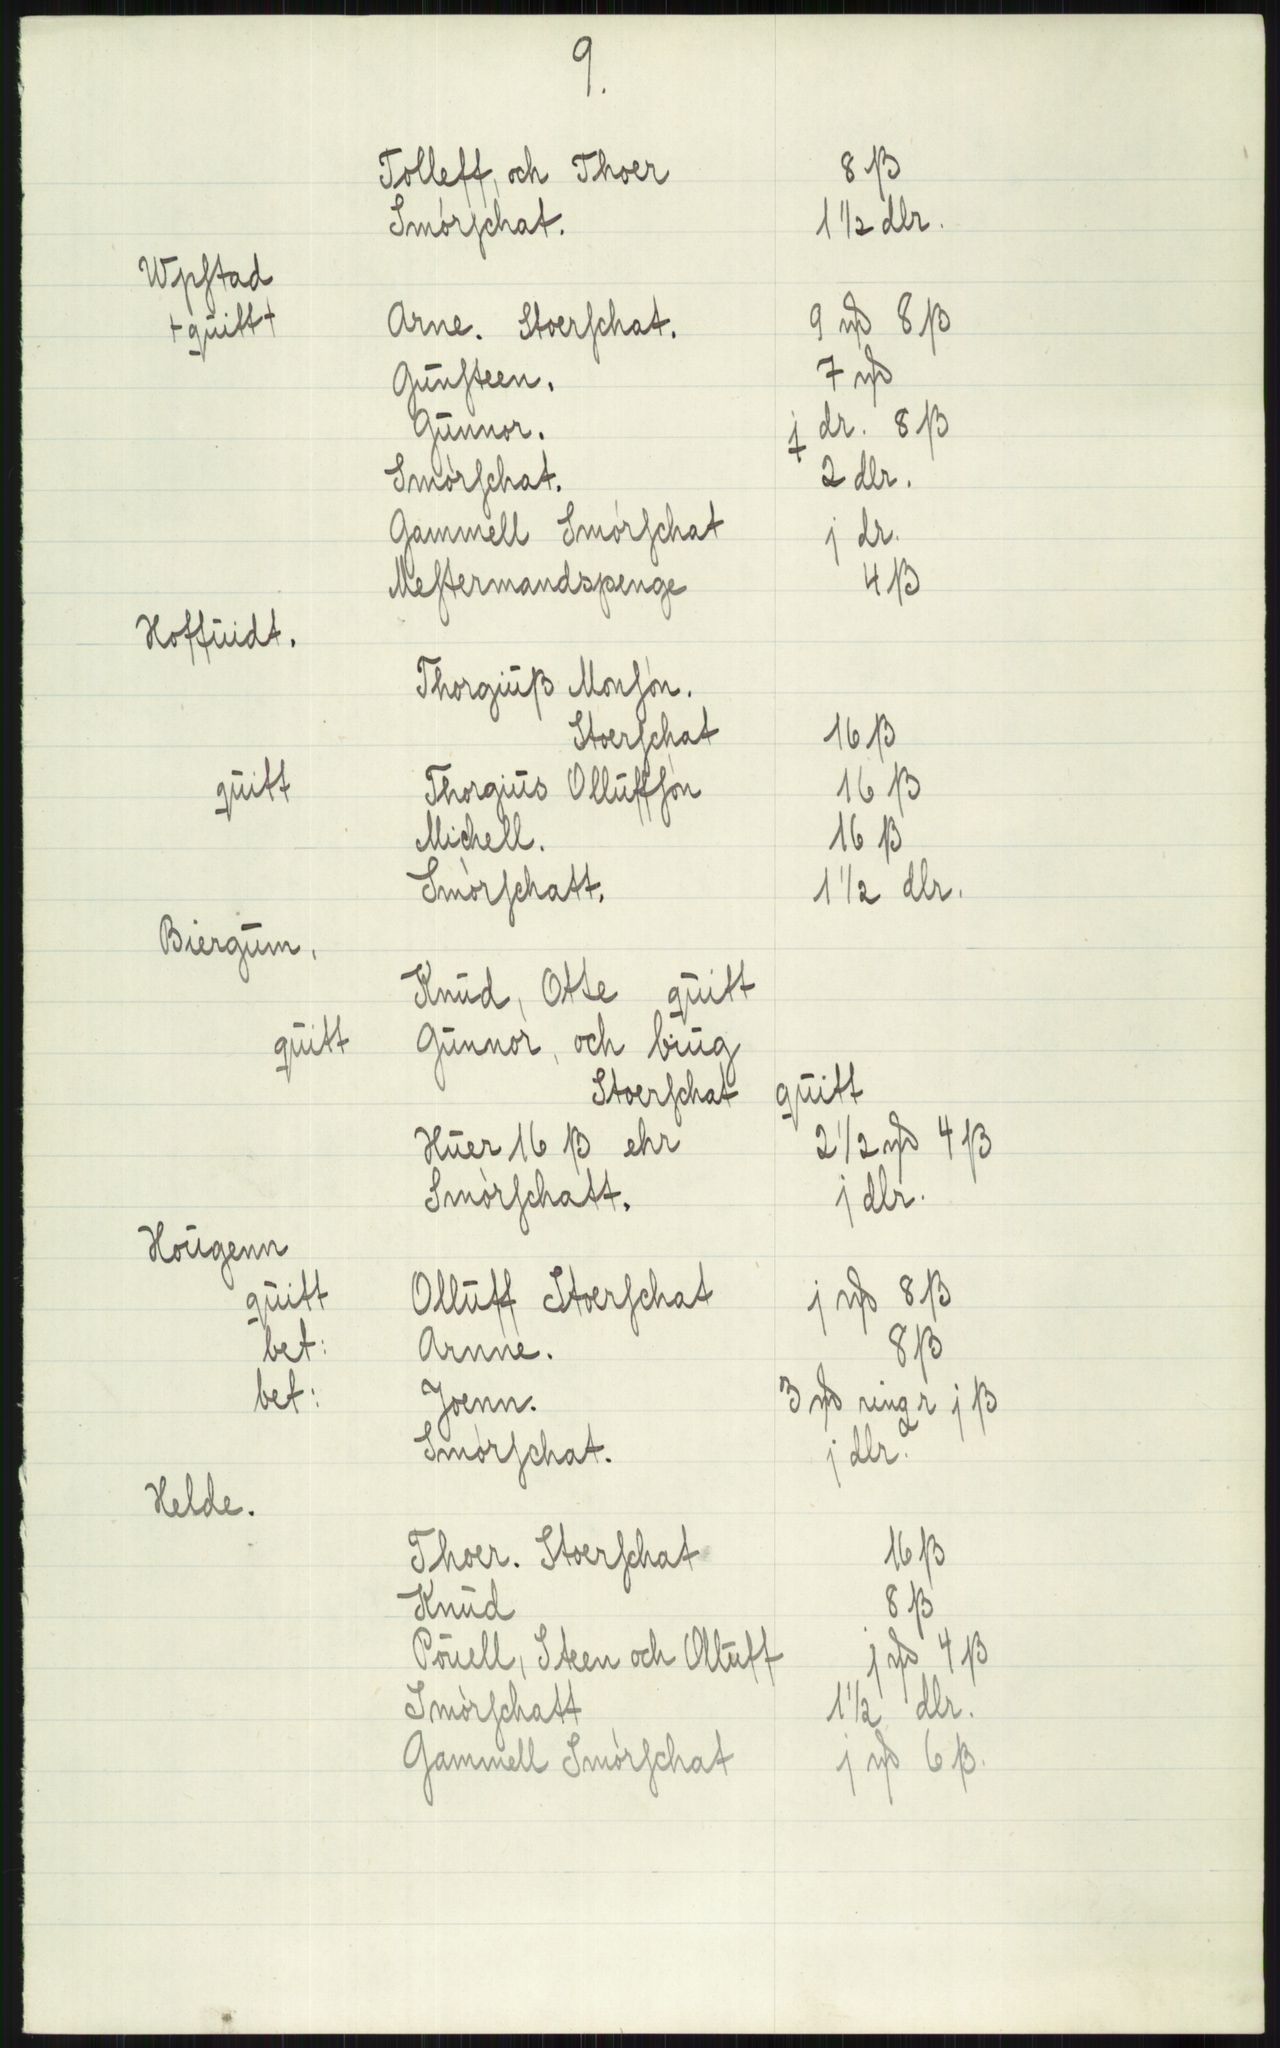 9.
Tolleff, och Thoer 8 ß
Smørſchat. 1 1/2 dlr.
Wpſtad
+ quitt + Arne. Stoerſchat. 9 ₻ 8 ß
Gūnſteen. 7 ₻
Gūnnor. j dr. 8 ß
Smørſchat. 2 dlr.
Gammell Smørſchat j dr.
Meſtermandspenge 4 ß
Hoffūidt.
Thorgiūß Monſøn.
Stoerſchat 16 ß
qūitt Thorgiūs Ollūffſøn 16 ß
Michell. 16 ß
Smørſchatt. 1 1/2 dlr.
Biergūm.
Knūd, Otte qūitt
qūitt Gūnnor, och biūg
Stoerſchat qūitt
Hūer 16 ß ehr 2 1/2 ₻ 4 ß
Smørſchatt. j dlr.
Hoūgenn
qūitt Ollūff Stoerſchat j ₻ 8 ß
bet: Arnne. 8 ß
bet: Joenn. 3 ₻ ringr j ß
Smørſchat. j dlr.
Helde.
Thoer. Stoerſchat 16 ß
Knūd 8 ß
Poūell, Steen och Ollūff j ₻ 4 ß
Smørſchatt 1 1/2 dlr.
Gammell Smørſchat j ₻ 6 ß.